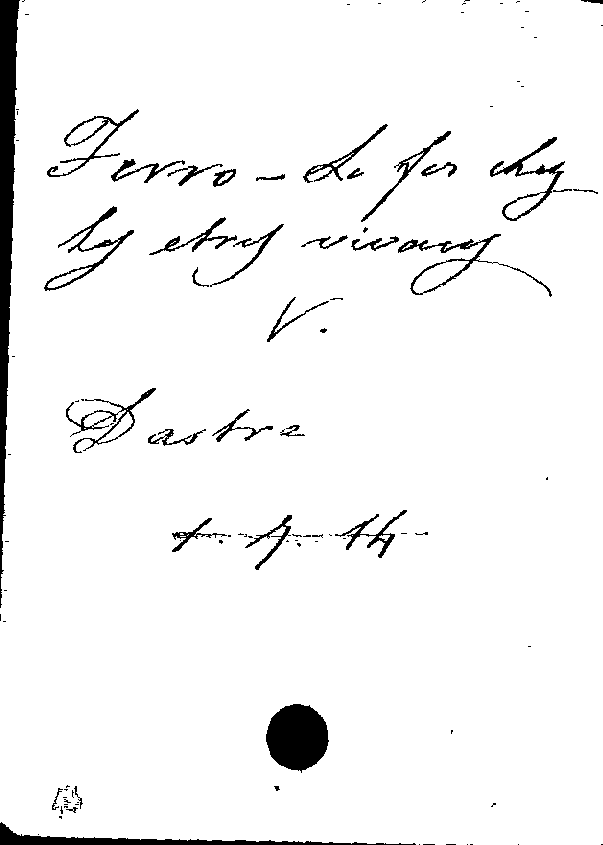 Ferro - Le fer chez
les etres vivants
V.
Dastre
1. 7. 14